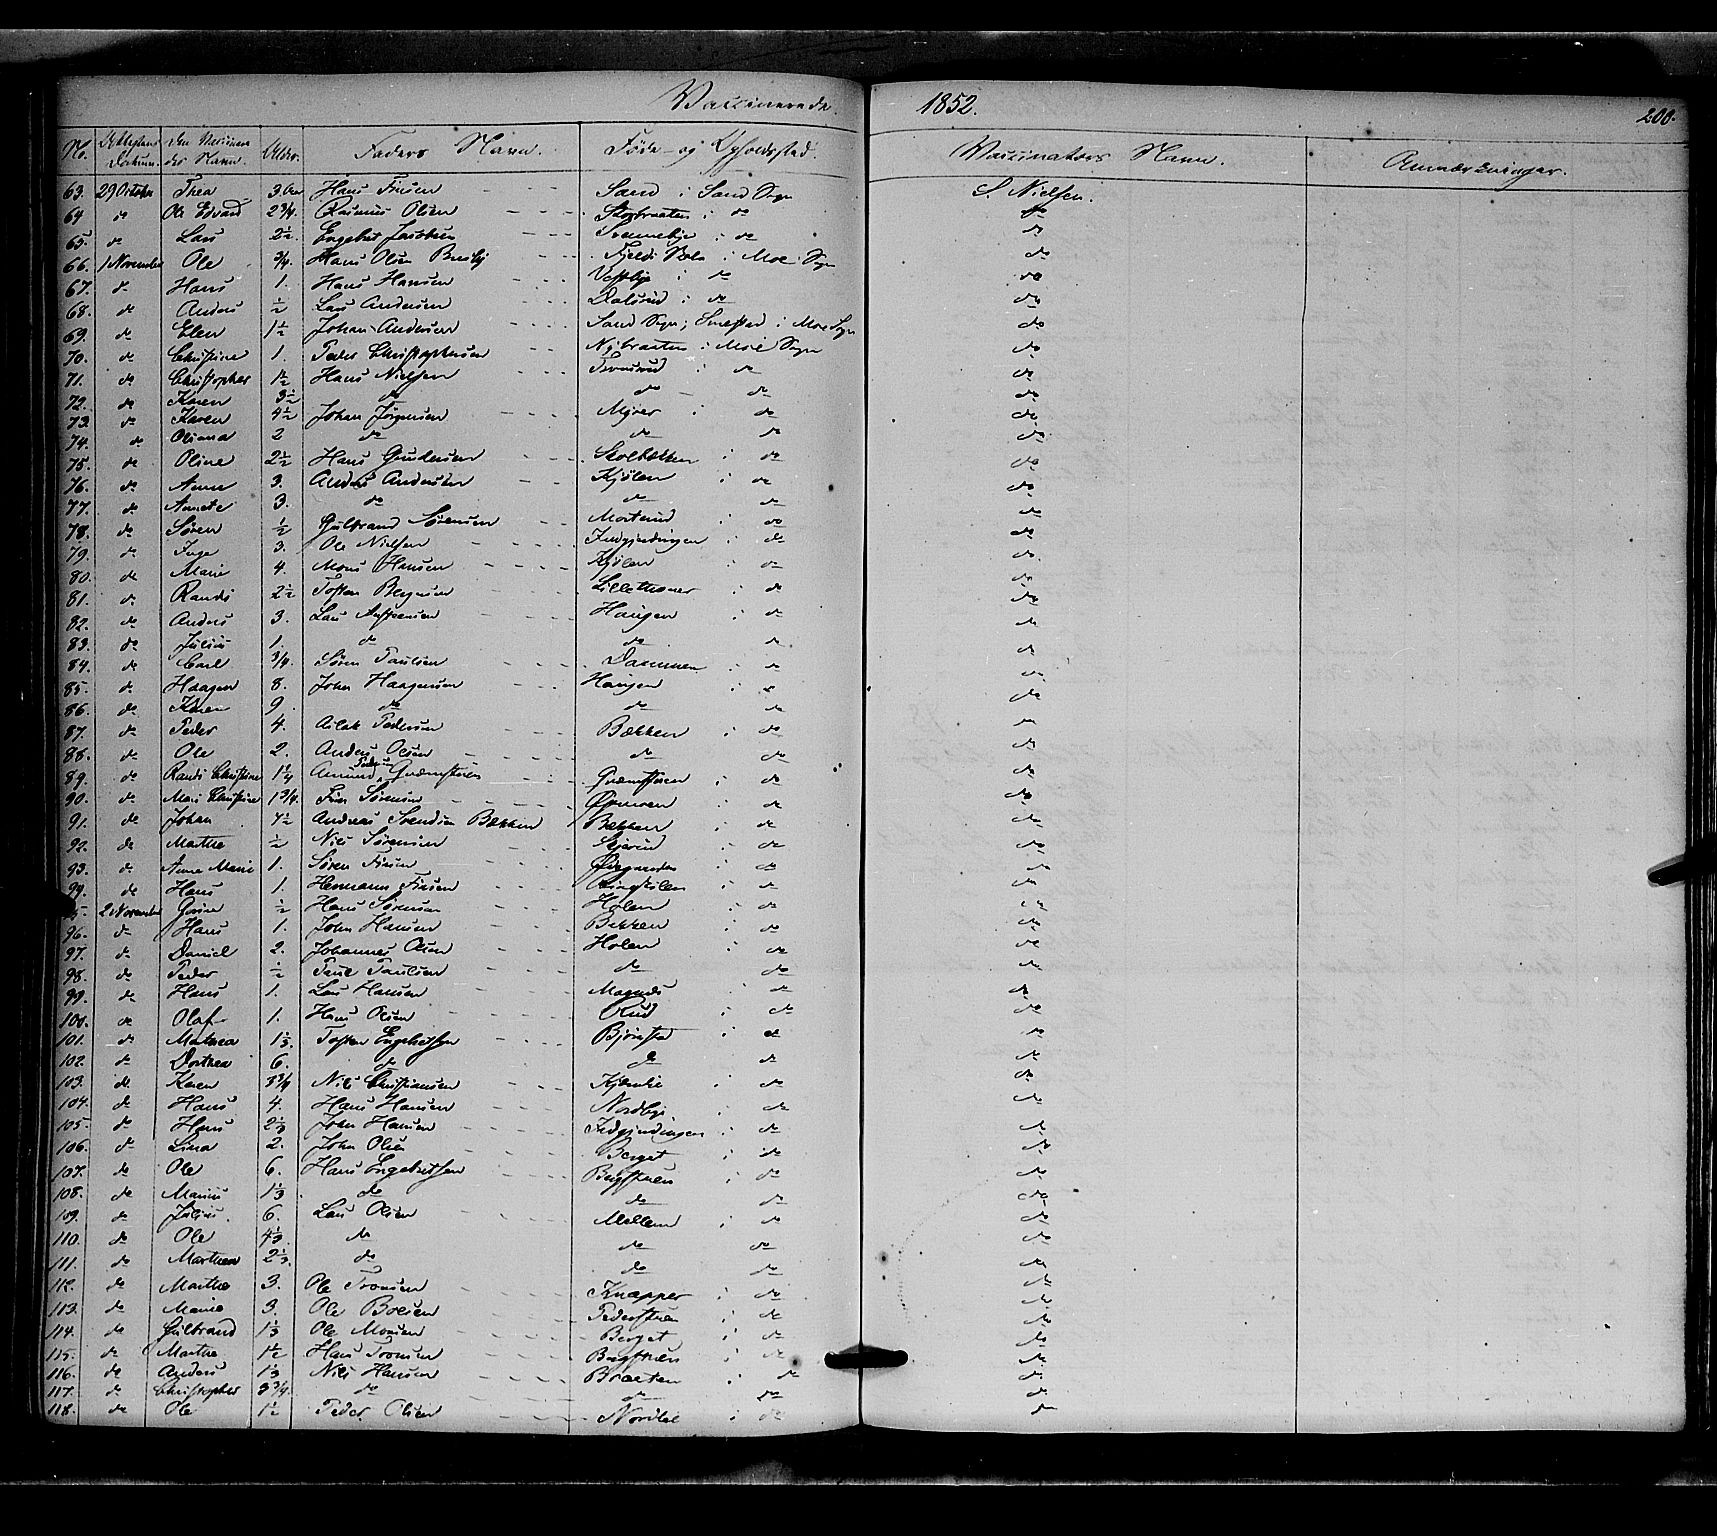 Vaccinerede 1852. 200.
No. Attestens Datum. Den Vaccineredes Navn. Alder. Faders Navn. Føde- og Opholdssted. Vaccinators Navn. Anmærkninger.
63. 29 October Thea 3 Aar Hans Finsen Sand i Sand Sogn S. Nielsen.
64 do Ole Edvard 2 3/4. Rasmus Olsen i do do
65. do Lars 2 1/2. Engebret Jacobsen i do do
66. 1 November Ole 3/4. Hans Olsen i Moe Sogn do
67. do Hans 1. Hans Hansen Vestbye i do do
68. do Anders 1/2 Lars Andersen Dalsrud i do do
69. do Elen 1 1/2 Johan Andersen Sand Sogn; i Moe Sogn do
70. do Christine 1. Peder Christophersen Nybraaten i Moe Sogn do
71. do Christopher 1 1/2 Hans Nielsen i do do
72. do Karen 3 1/2 do do do do
73. do Karen 4 1/2 Johan Jørgensen Myrer i do do
74. do Oliana 2 do do do do
75. do Oline 2 1/2 Hans Gundersen i do do
76. do Anne 3. Anders Andersen Kjølen i do do
77. do Annete 3. do do do do
78. do Søren 1/2 Gulbrand Sørensen Morterud i do do
79. do Inge 3. Ole Nielsen Indgjerdingen i do do
80. do Marie 4. Mons Hansen Kjølen i do do
81. do Randi 2 1/2 Tosten i do do
82. do Anders 3. Lars Haugen i do do
83. do Julius 1. do do do do
84. do Carl 3/4. Søren Paulsen Dammen i do do
85. do Haagen 8. John Haagensen Haugen i do do
86. do Karen 9. do do do do
87. do Peder 4. Aslak Pedersen Bækken i do do
88. do Ole 2. Anders Olsen do do do
89. do Randi Christine 1 1/4 Amund Pedersen Grændsen i do do
90. do Mari Christine 1 3/4. Finn Sørensen i do do
91. do Johan 4 1/2 Andreas Svendsen Bækken Bækken i do do
92. do Marthe 1/2 Niels Sørensen i do do
93. do Anne Marie 1. Søren Finsen Ødegaarden i do do
94. do Hans 1. Hermann Finsen i do do
95. 2 November 1/2 Hans Sørensen Holen i do do
96. do Hans 1. John Hansen Bekken i do do
97. do Daniel 2. Johannes Olsen Holen i do do
98. do Peder 1/2 Paul Paulsen do do do
99. do Hans 1. Lars Hansen i do do
100. do Olaf 1. Hans Olsen Rud i do do
101. do Mathea 1 1/3. Tosten Engebretsen Bjørnstad i do do
102. do Dorthea 6. do do do do
103. do Karen 3 3/4 Niels Christiansen i do do
104. do Hans 4. Hans Hansen Nordbye i do do
105. do Hans 2 1/3 John Hansen Indgjerdingen i do do
106. do Lina 2. John Olsen Berget i do do
107. do Ole 6. Hans Engebretsen Bergstuen i do do
108. do Marius 1 1/3. do do do do
109. do Julius. 6. Lars Olsen Mellem i do do
110. do Ole 4 1/3. do do do do
111. do Marthea 2 1/3. do do do do
112. do Marthe 3. Ole Tronsen Knapper i do do
113. do Marie 3. Ole Boesen Pederstuen i do do
114. do Gulbrand 1 1/3 Ole Monsen Berget i do do
115. do Marthe 1 1/2 Hans Tronsen Bergstuen i do do
116. do Anders 1 1/3 Niels Hansen Braaten i do do
117. do Christopher 3 3/4. do do do do
118. do Ole 1 1/2 Peder Olsen i do do